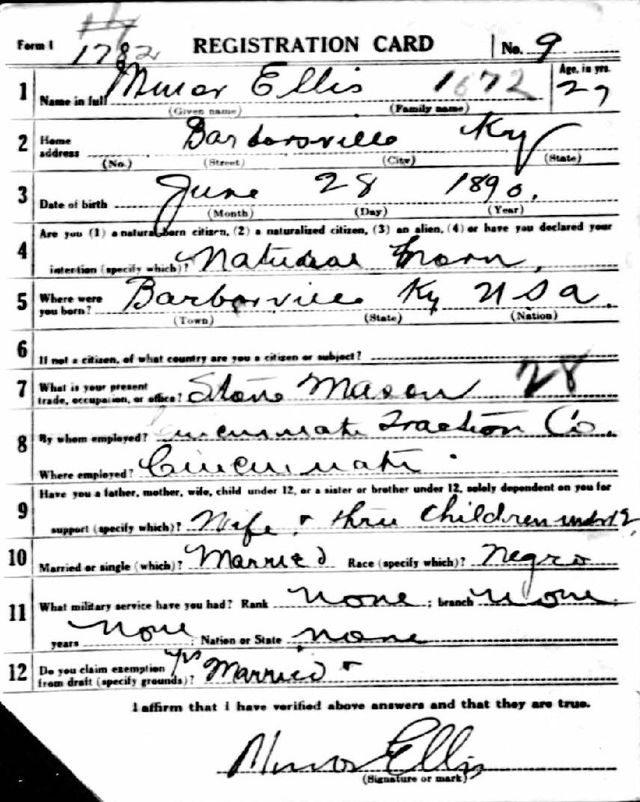 Form 1
1782 REGISTRATION CARD No. 9
1 Name in full Minor Ellis 1672 Age, in yrs. 27
(Given name) (Family name)
2 Home address Barborsville Ky
(No.) (Street) (City) (State)
3 Date of birth June 28 1890.
(Month) (Day) (Year)
4 Are you (1) a natural-born citizen, (2) a naturalized citizen, (3) an alien, (4) or have you declared your
intention (specify which)? Natural born.
5 Where were you born? Barborville Ky USA.
(Town) (State) (Nation)
6 If not a citizen, of what country are you a citizen or subject?
7 What is your present trade, occupation, or office? Stone Mason 28
8 By whom employed? Cincinnati Traction Co.
Where employed? Cincinnati.
9 Have you a father, mother, wife, child under 12, or a sister or brother under 12, solely dependent on you for
support (specify which)? Wife & thru children under 12
10 Married or single (which)? Married Race (specify which)? Negro
11 What military service have you had? Rank None; branch None
years None; Nation or State None
12 Do you claim exemption from draft (specify grounds)? yes Married
I affirm that I have verified above answers and that they are true.
Minor Ellis
(Signature or mark)